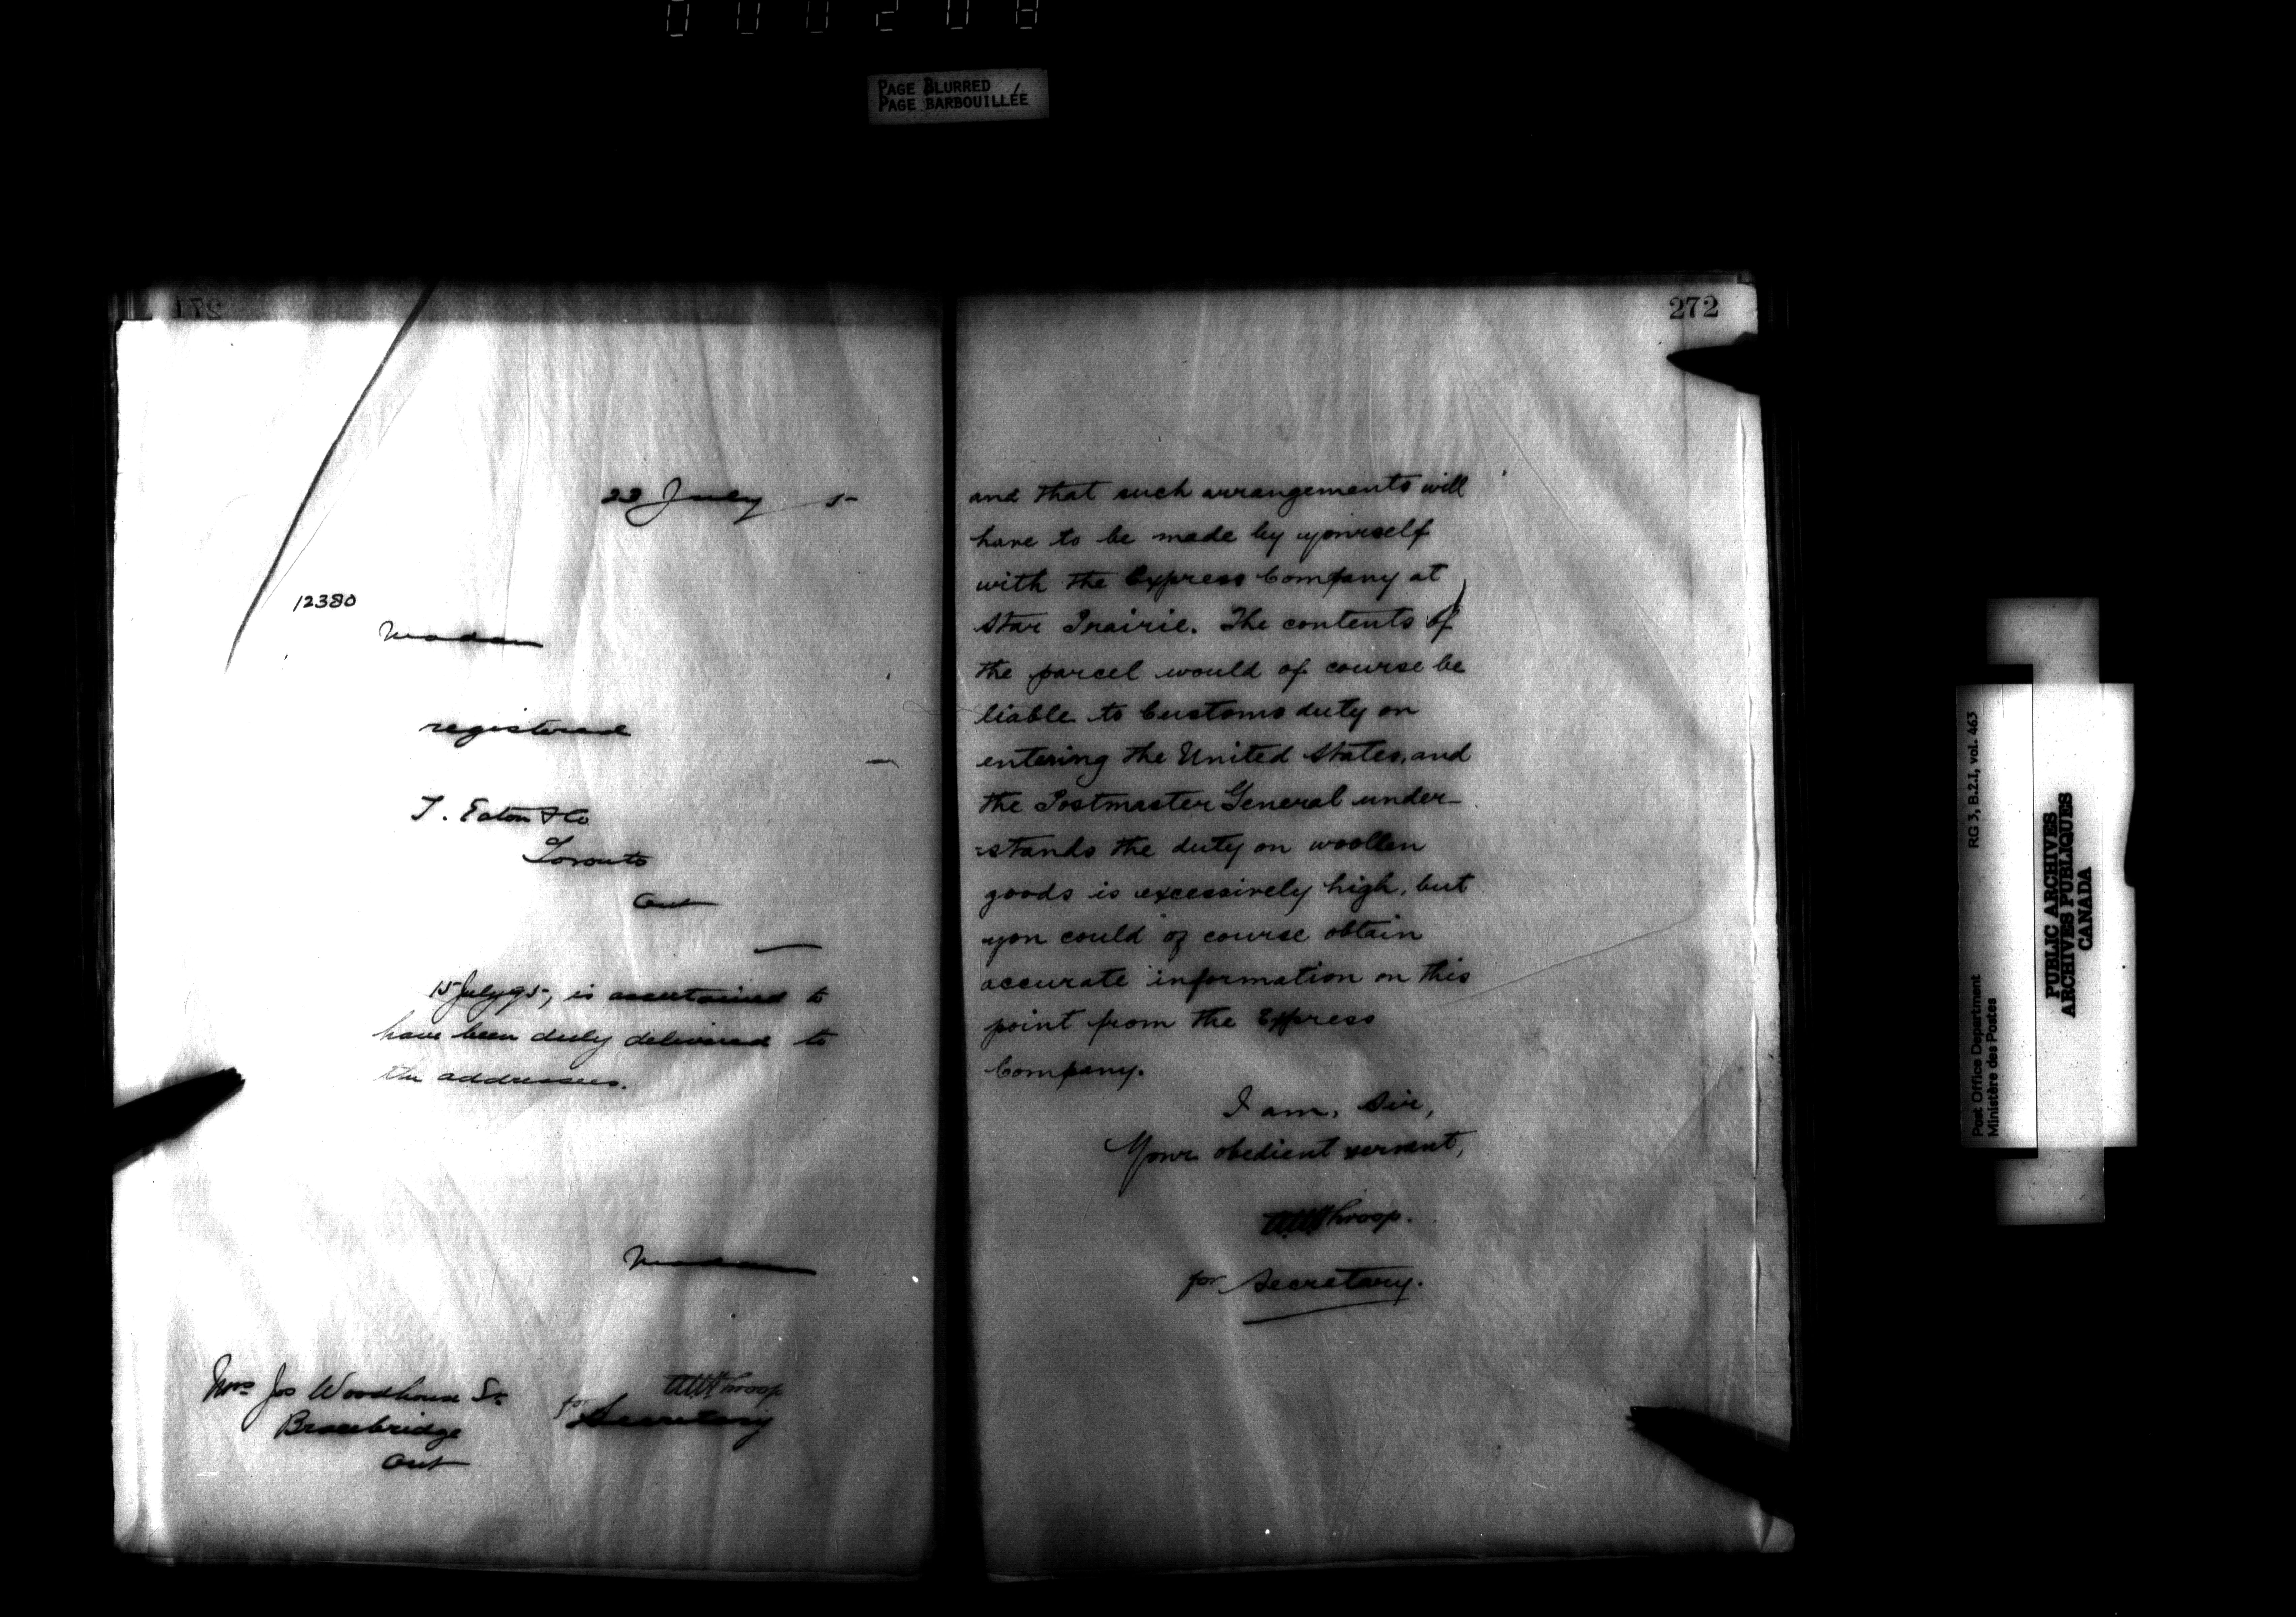 000208
PAGE BLURRED
PAGE BARBOUILLÉE
271
22 July 5
12380
Madam
registered
T. Eaton & Co
Toronto
Ont
15 July 95, is ascertained to
have been duly delivered to
the addressees.
Madam
Mrs Jos Woodhouse Sr
Bracebridge
Ont
WHThroop
for Secretary
272
and that such arrangements will
have to be made by yourself
with the Express Company at
Star Prairie. The contents of
the parcel would of course be
liable to Customs duty on
entering the United States, and
the Postmaster General under-
=stands the duty on woollen
goods is excessively high, but
you could of course obtain
accurate information on this
point from the Express
Company.
I am, Sir,
Your obedient servant,
Throop.
for Secretary.
Post Office Department RG 3, B.2.I, vol. 463
Ministère des Postes
PUBLIC ARCHIVES
ARCHIVES PUBLIQUES
CANADA